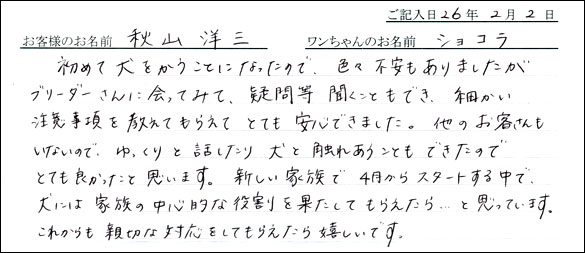 ご記入日26年2月2日
お客様のお名前 秋山 洋三 ワンちゃんのお名前 ショコラ
初めて犬をかうことになったので、色々不安もありましたが
ブリーダーさんに会ってみて、疑問等聞くこともでき、細かい
注意事項を教えてもらえてとても安心できました。他のお客さんも
いないので、ゆっくりと話したり犬と触れあうこともできたので
とても良かったと思います。新しい家族で4月からスタートする中で、
犬には家族の中心的な役割を果たしてもらえたら…と思っています。
これからも親切な対応をしてもらえたら嬉しいです。